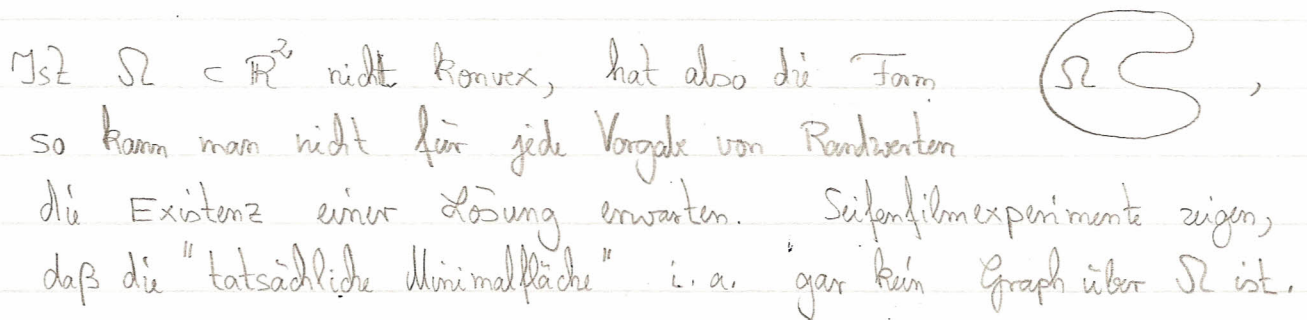 Ist Ω ⊂ ℝ² nicht konvex, hat also die Form Ω ,
so kann man nicht für jede Vorgabe von Randwerten
die Existenz einer Lösung erwarten. Seifenfilmexperimente zeigen,
daß die "tatsächliche Minimalfläche" i. a. gar kein Graph über Ω ist.